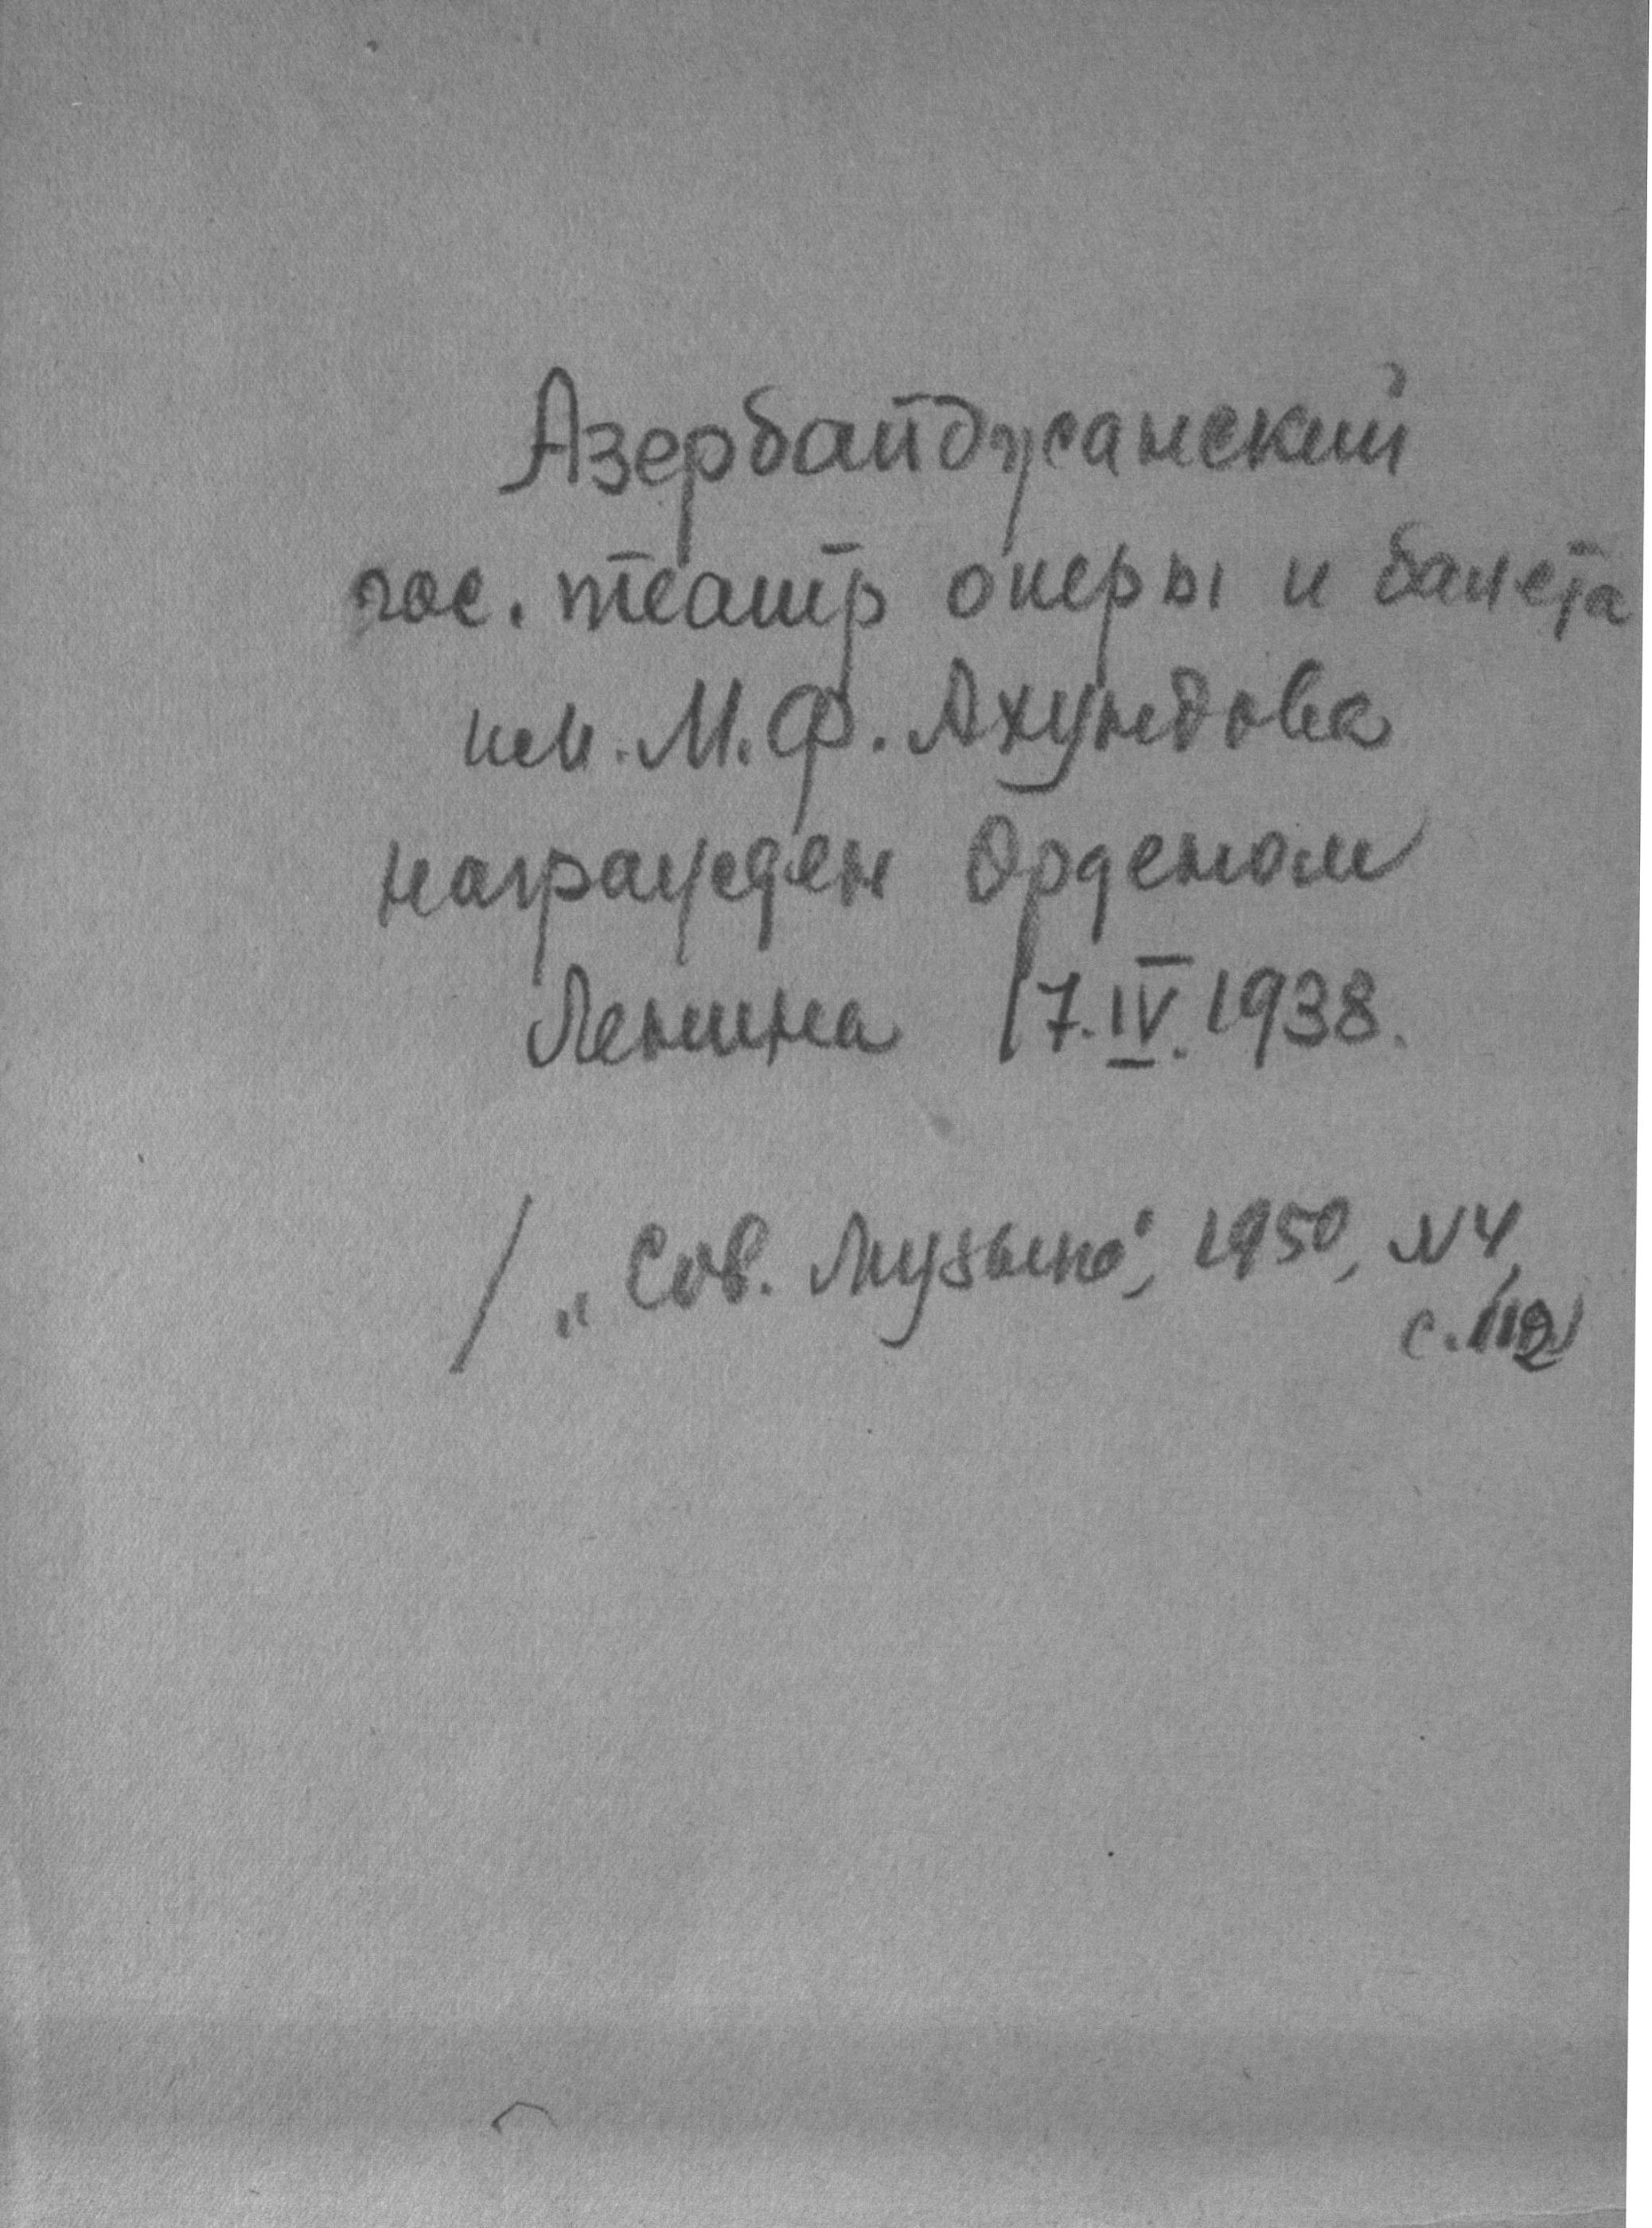 Азербайджанский
гос. театр оперы и балета
им. М.Ф. Ахундова
награжден Орденом
Ленина 17.IV.1938.
/ „Сов. музыка", 1950, №4,
с. 112/